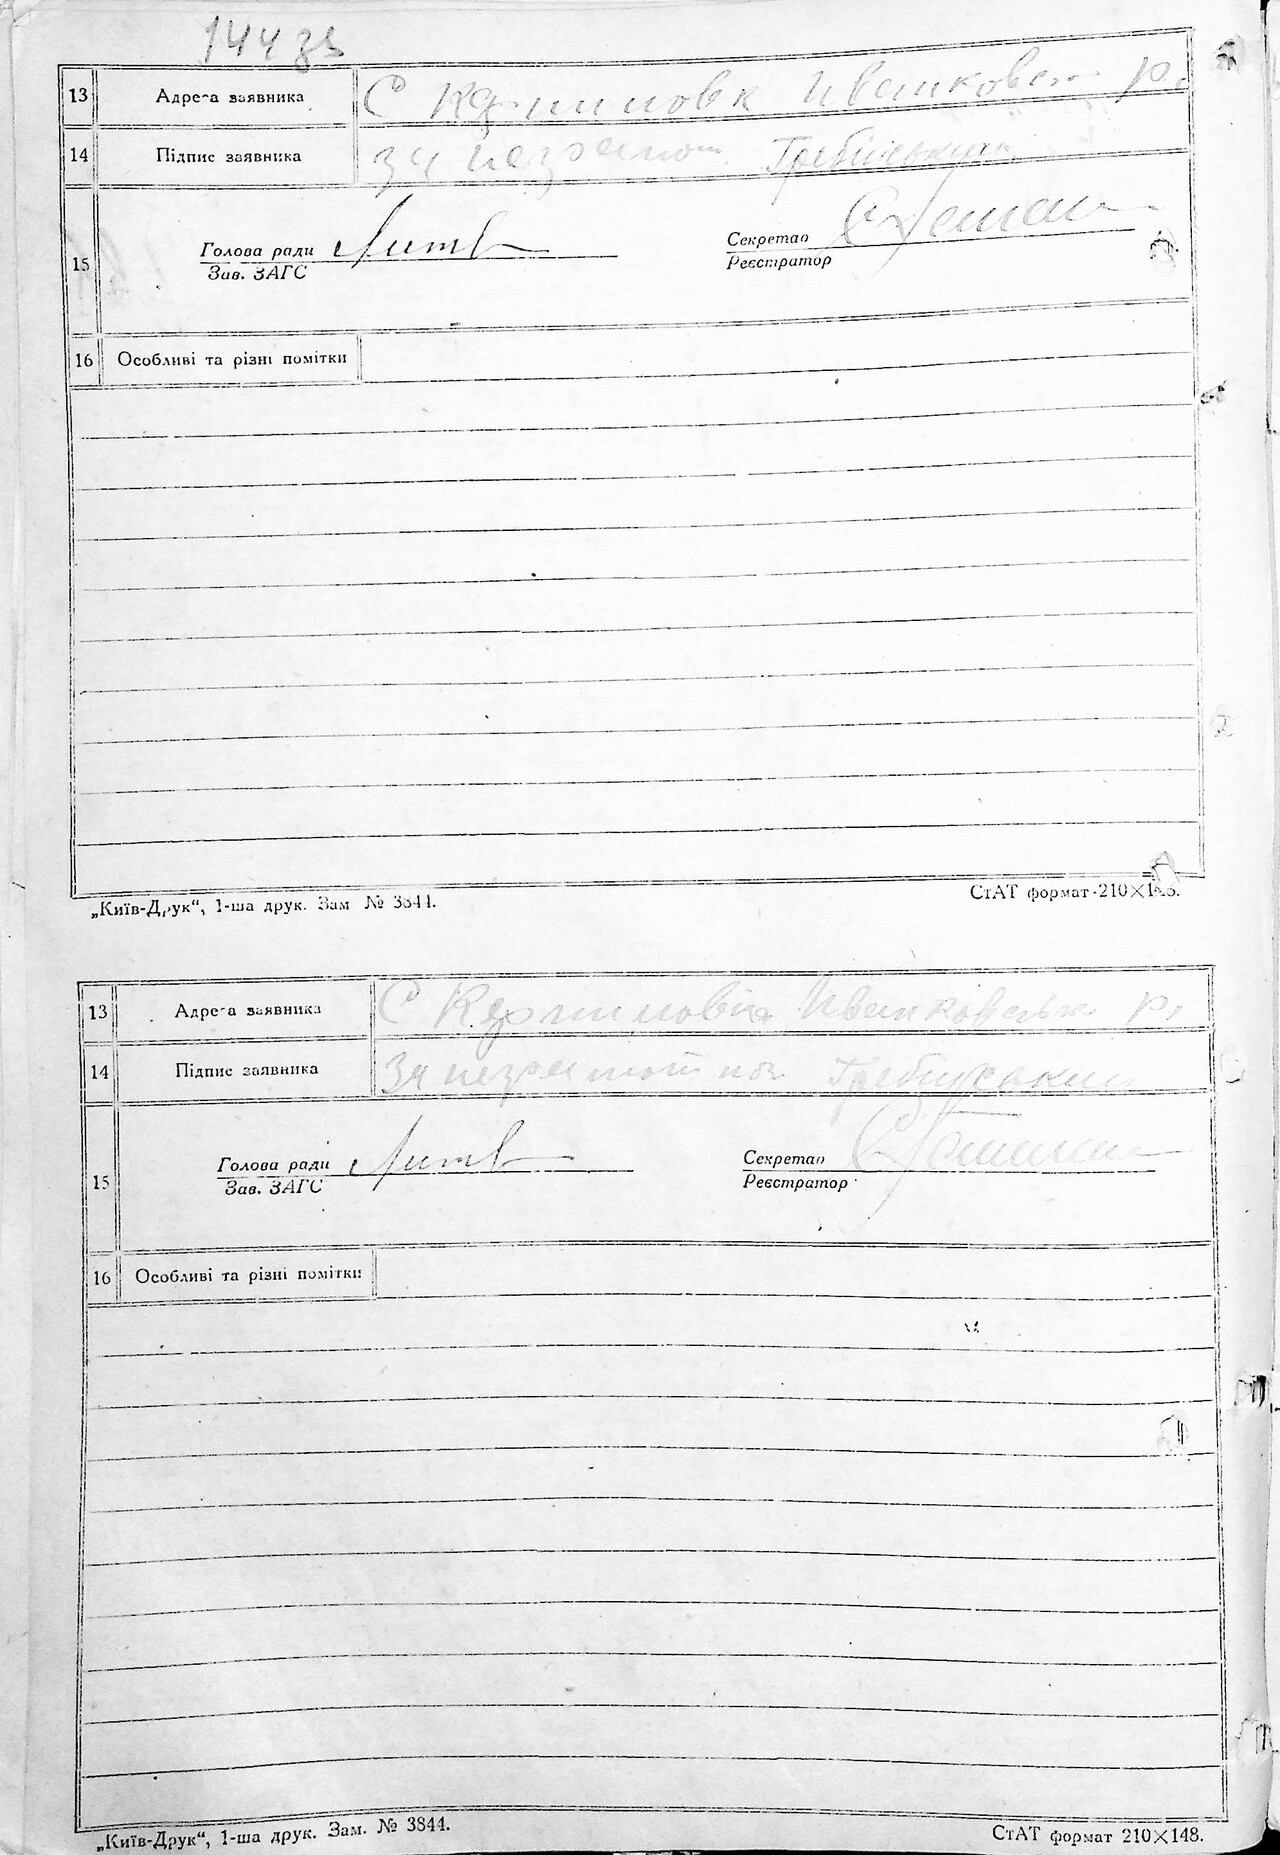 144 зв
13 Адреса заявника С
14 Підпис заявника за Гребінський
15 Голова ради Литв Секретар
Зав. ЗАГС Реєстратор
16 Особливі та різні помітки
„Київ-Друк“, 1-ша друк. Зам № 3844.
СтАТ формат 210×148.
13 Адреса заявника С
14 Підпис заявника За неграмотно
15 Голова ради Литв Секретар
Зав. ЗАГС Реєстратор
16 Особливі та різні помітки
„Київ-Друк“, 1-ша друк. Зам. № 3844.
СтАТ формат 210×148.